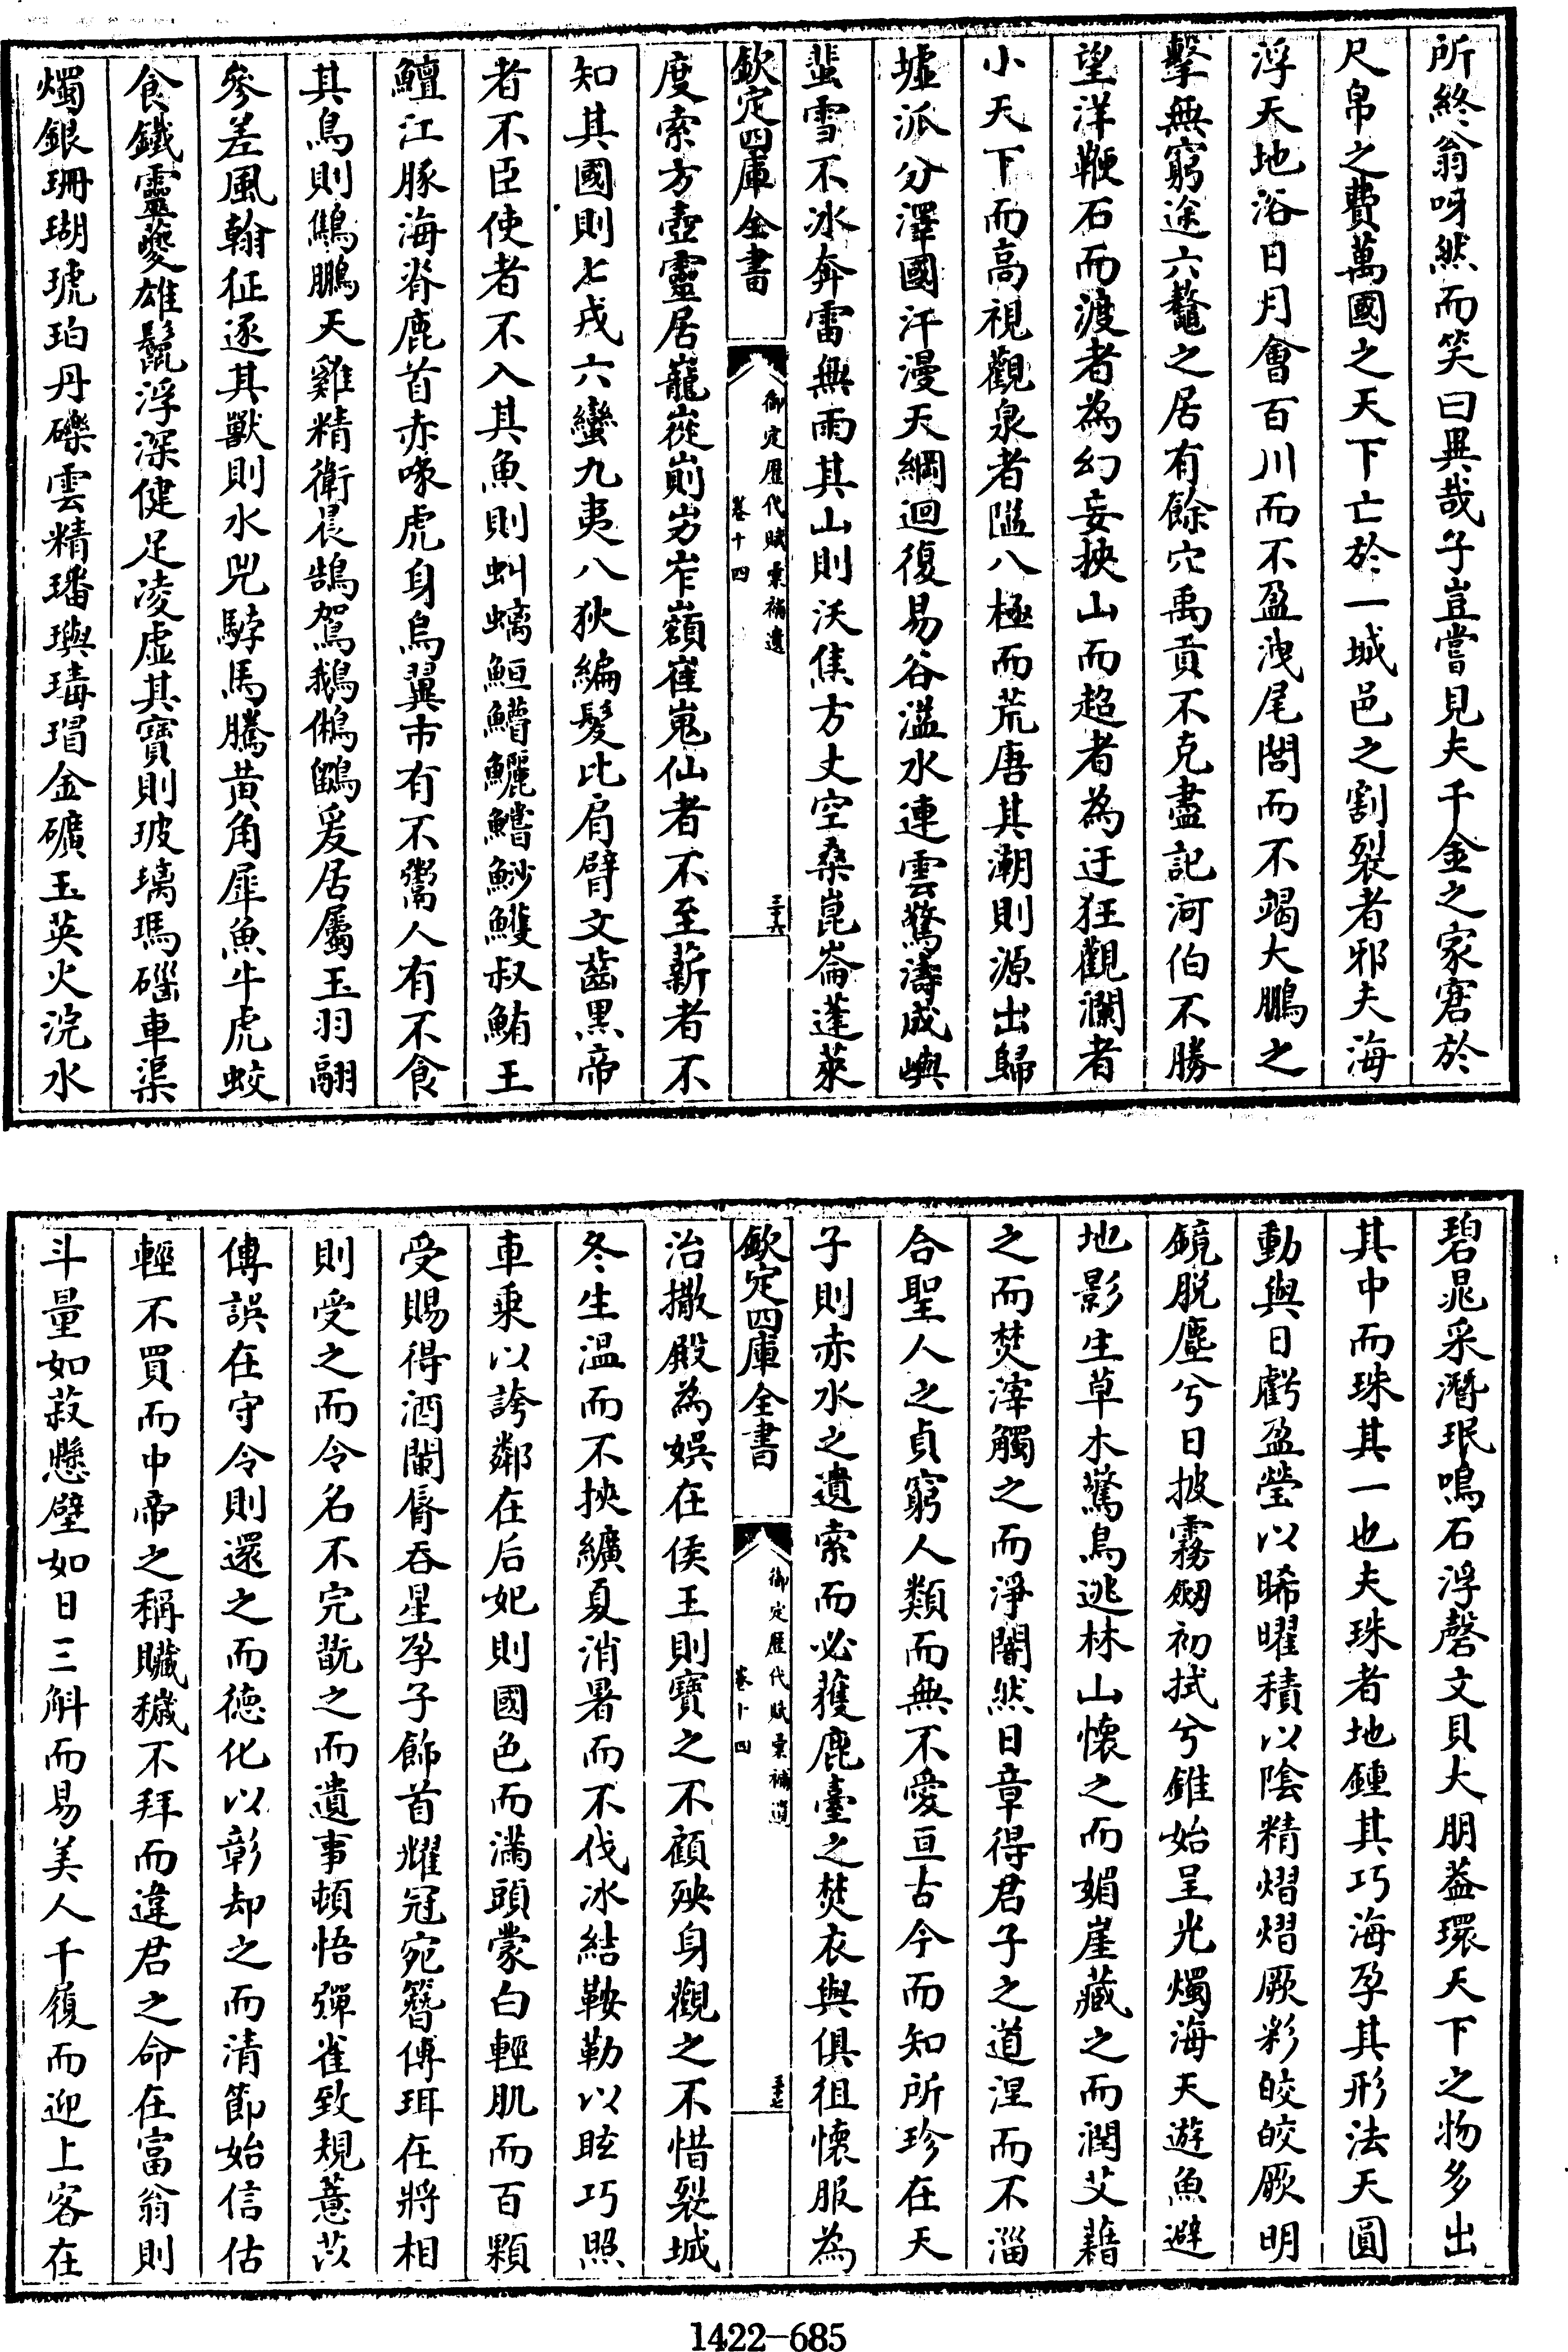 所終翁呀然而笑曰異哉子豈嘗見夫千金之家窘於
尺帛之費萬國之天下亡於一城邑之割裂者邪夫海
浮天地浴日月會百川而不盈洩尾閭而不竭大鵬之
擊無窮途六鼇之居有餘穴禹貢不克盡記河伯不勝
望洋鞭石而渡者為幻妄挾山而超者為迂狂觀瀾者
小天下而高視觀泉者隘八極而荒唐其潮則源出歸
墟派分澤國汗漫天綱迴復易谷溢水連雲驚濤成嶼
蜚雪不冰奔雷無雨其山則沃焦方丈空桑崑崙蓬萊
欽定四庫全書
御定歷代賦彙補遺
卷十四
三十六
度索方壺靈居巃嵸崱屴岝嶺崔嵬仙者不至薪者不
知其國則七戎六蠻九夷八狄編髮比肩臂文齒黑帝
者不臣使者不入其魚則虯螭䱎鱛鱺鱨魦鱯叔鮪王
鱣江豚海脊鹿首赤喙虎身鳥翼市有不鬻人有不食
其鳥則鷦鵬天雞精衛晨鵠駕鵝鵂鶹爰居屬玉羽翮
參差風翰征逐其獸則水兕駮馬騰黃角犀魚牛虎蛟
食鐵靈夔雄鬣浮深健足凌虛其寶則玻璃瑪碯車渠
燭銀珊瑚琥珀丹礫雲精璠璵瑇瑁金礦玉英火浣水
碧晁采潛珉鳴石浮磬文貝大朋葢環天下之物多出
其中而珠其一也夫珠者地鍾其巧海孕其形法天圓
動與日虧盈瑩以晞曜積以陰精熠熠厥彩皎皎厥明
鏡脱塵兮日披霧劒初拭兮錐始呈光燭海天遊魚避
地影生草木驚鳥逃林山懷之而媚崖藏之而潤艾藉
之而焚滓觸之而淨闇然日章得君子之道涅而不淄
合聖人之貞窮人類而無不愛亘古今而知所珍在天
子則赤水之遺索而必獲鹿臺之焚衣與俱徂懷服為
欽定四庫全書
御定歷代賦彙補遺
卷十四
三十七
治撒殿為娛在侯王則寶之不顧殃身觀之不惜裂城
冬生温而不挾纊夏消暑而不伐冰結鞍勒以眩巧照
車乘以誇鄰在后妃則國色而滿頭蒙白輕肌而百顆
受賜得酒闌脣吞星孕子飾首耀冠宛簪傅珥在將相
則受之而令名不完翫之而遺事頓悟彈雀致規薏苡
傳誤在守令則還之而德化以彰却之而清節始信估
輕不買而中帝之稱贓穢不拜而違君之命在富翁則
斗量如菽懸壁如日三斛而易美人千𡳐而迎上客在
1422-685